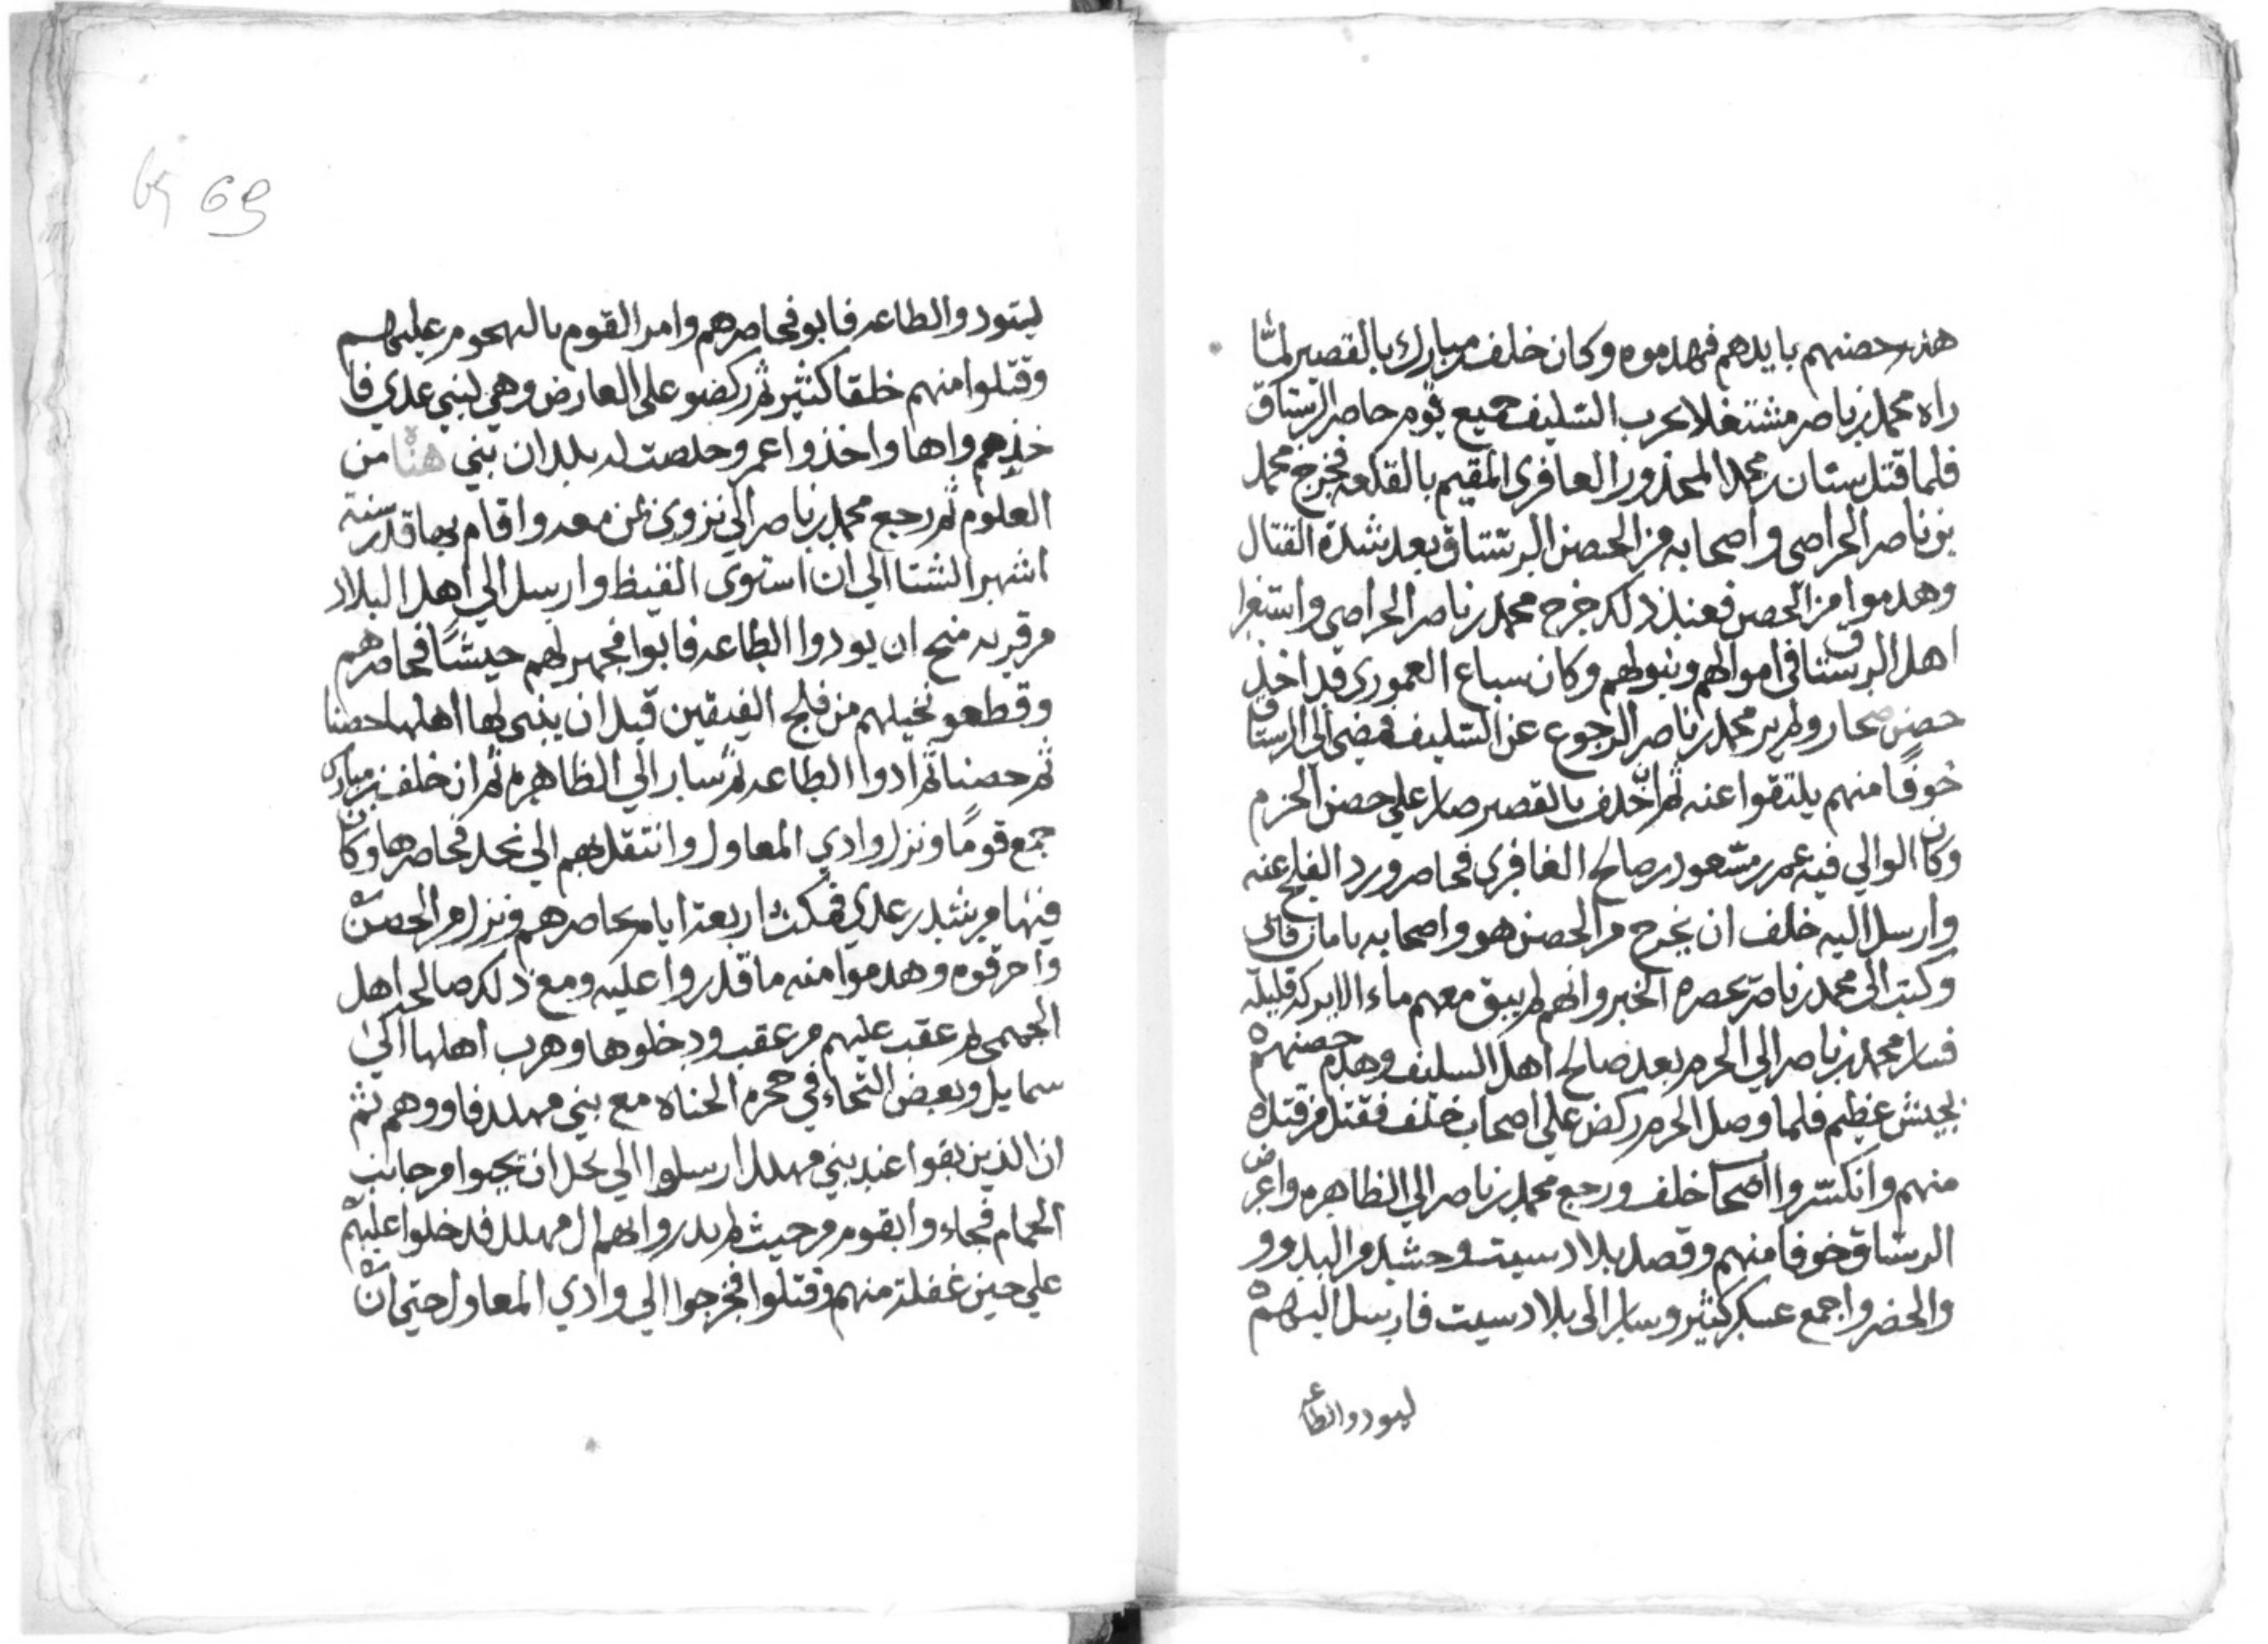 هذه حصنهم بايدهم فهدموه وكان خلف مبارك بالقصير لمّا
راه محمد بن ناصر مشتغلا بحرب السليف جميع قوم حاصر الرستاق
فلما قتل سنان بن محمد المحذور الغافري المقيم بالقلعه فخرج محمد
بن ناصر الحراصي واصحابه من الحصن الرستاق بعد شدة القتال
وهدموا من الحصن فعند ذلك خرج محمد بن ناصر الحراصي
اهل الرستاق في اموالهم وبيوتهم وكان سباع العموري قد اخذ
حصن صحار ولم ير محمد بن ناصر الرجوع عن السليف فمضي الي الرستاق
خوفًا منهم يلتقوا عنه ثم ان خلف بالقصير صار علي حصن الحزم
وكان الوالي فيه عمر بن مسعود بن صالح الغافري فحاصر ورد الفلج عنه
وارسل اليه خلف ان يخرج من الحصن هو واصحابه بامان فابي
وكتب الى محمد بن ناصر بحصره الخبر وانهم لم يبق معهم ماء الا بركه قليله
فسار محمد بن ناصر الي الحزم بعد صالح اهل السليف وهدم حصنهم
بجيش عظيم فلما وصل الحزم ركض علي اصحاب خلف فقتل من قتل
منهم وانكسروا اصحاب خلف ورجع محمد بن ناصر الي الظاهره واعرض
الرستاق خوفا منهم وقصد بلاد سيت وحشد من البدو و
والحضر واجمع عسكر كثير وسار الى بلاد سيت فارسل اليهم
ليودوا الطاعه
69 69
ليتودوا الطاعه فابو فحاصرهم وامر القوم بالهجوم عليهم
وقتلوا منهم خلقا كثير ثم ركضو على العارض وهي لبني عدي فا
خذهم واها واخذوا عمر وخلصت له بلدان بني هنا من
العلوم ثم رجع محمد بن ناصر الي نزوى بمن معه واقام بها قدر ستة
اشهر الشتا الي ان استوى القيظ وارسل الي اهل البلاد
من قريه منح ان يودوا الطاعه فابوا فجهز لهم جيشًا فحاصرهم
وقطعو نخيلهم من فلج الفيقين قبل ان يبني لها اهلها حصنا
ثم حصنا ثم ادوا الطاعه ثم سار الي الظاهره ثم ان خلف بن مبارك
جمع قومًا ونزل وادي المعاول وانتقل بهم الي نخل فحاصرها وكان
فيها مرشد بن عدي فمكث اربعة ايام يحاصرهم ونزل من الحصن
واحرقوه وهدموا منه ما قدروا عليه ومع ذلك صالحه اهل
الجهمي ثم عقب عليهم من عقب ودخلوها وهرب اهلها الي
سمايل وبعض التجاء في حجرة الحناه مع بني مهلل فاووهم ثم
ان الذين بقوا عند بني مهلل ارسلوا الي نخل ان تجيوا من جانب
الحمام فجاءوا بقوم من حيث لم يدروا بهم ال مهلل فدخلوا عليهم
علي حين غفلة منهم وقتلوا فخرجوا الي وادي المعاول حتي ان